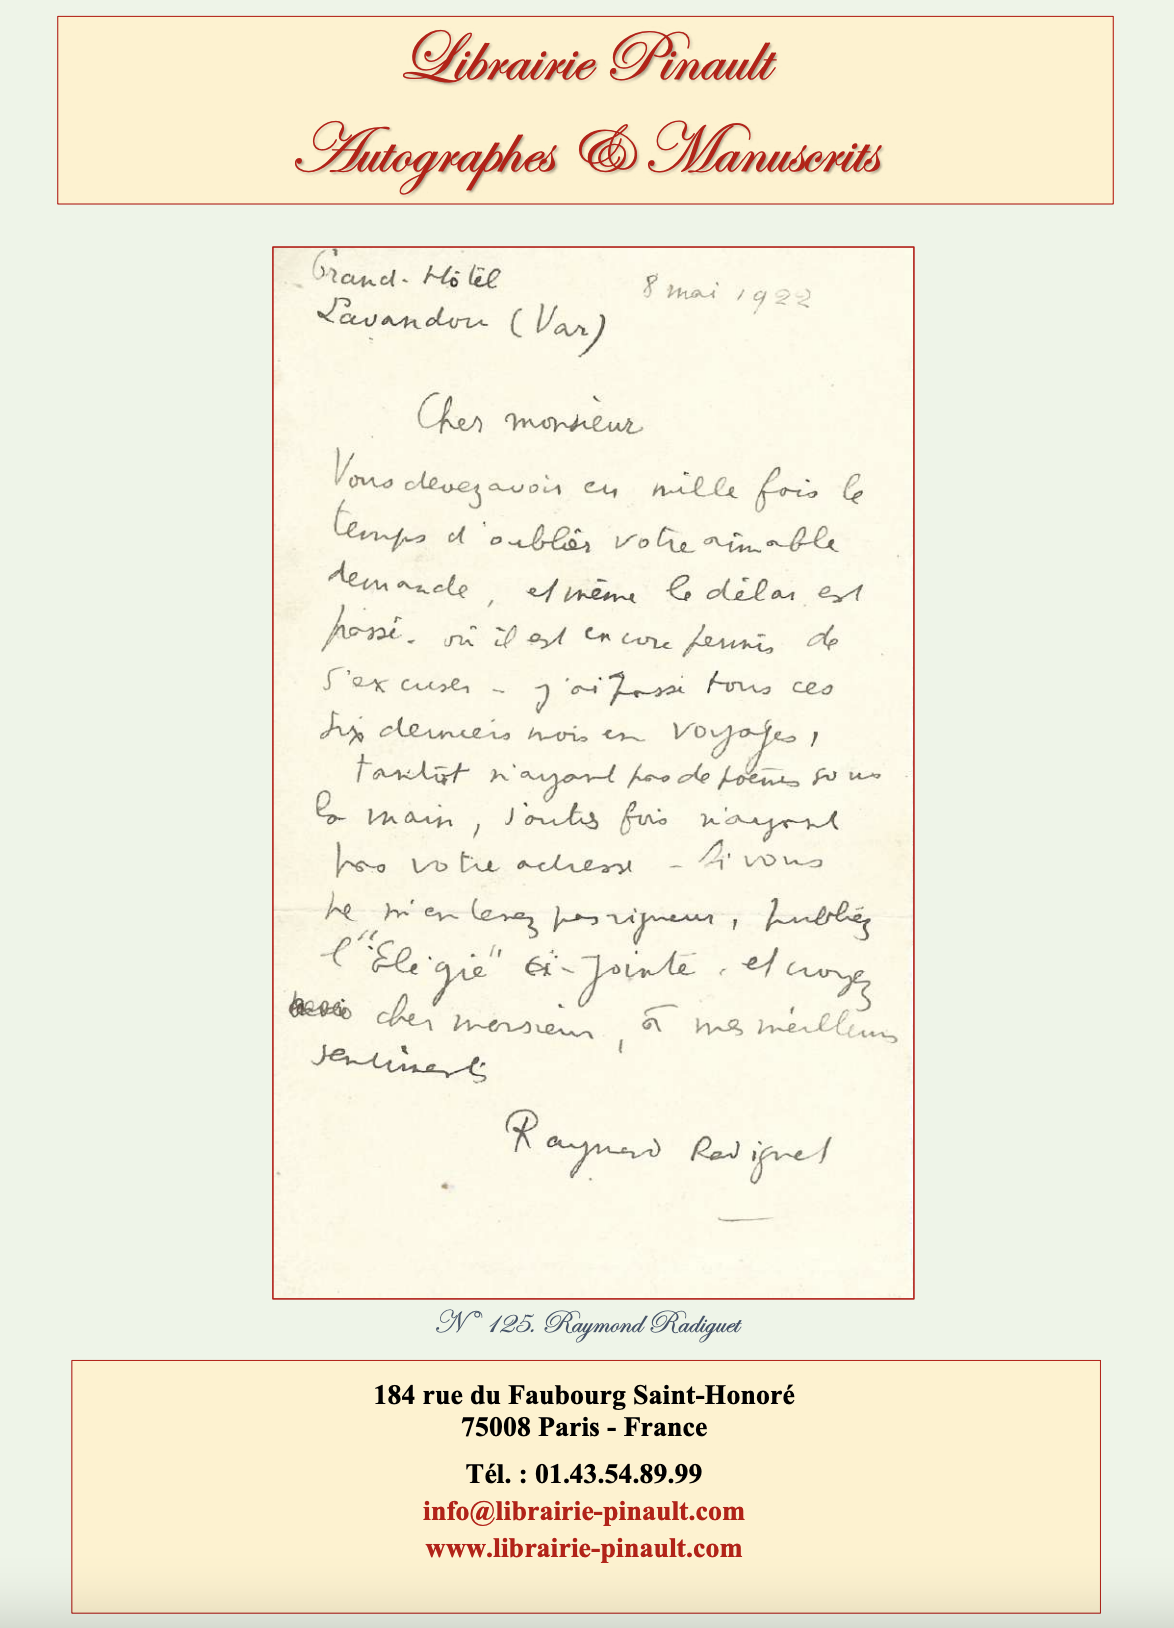 Librairie Pinault
Autographes & Manuscrits
Grand-Hôtel
Lavandou (Var)
8 mai 1922
Cher monsieur
Vous devez avoir eu mille fois le
temps d'oublier votre aimable
demande, et même le délai est
passé où il est encore permis de
s'excuser - j'ai passé tous ces
six derniers mois en voyages,
tantôt n'ayant pas de poèmes sous
la main, d'autres fois n'ayant
pas votre adresse - Si vous
ne m'en tenez pas rigueur, publiez
l'"Elégie" ci-jointe, et croyez
cher monsieur, à mes meilleurs
sentiments
Raymond Radiguet
N° 125. Raymond Radiguet
184 rue du Faubourg Saint-Honoré
75008 Paris - France
Tél. : 01.43.54.89.99
info@librairie-pinault.com
www.librairie-pinault.com